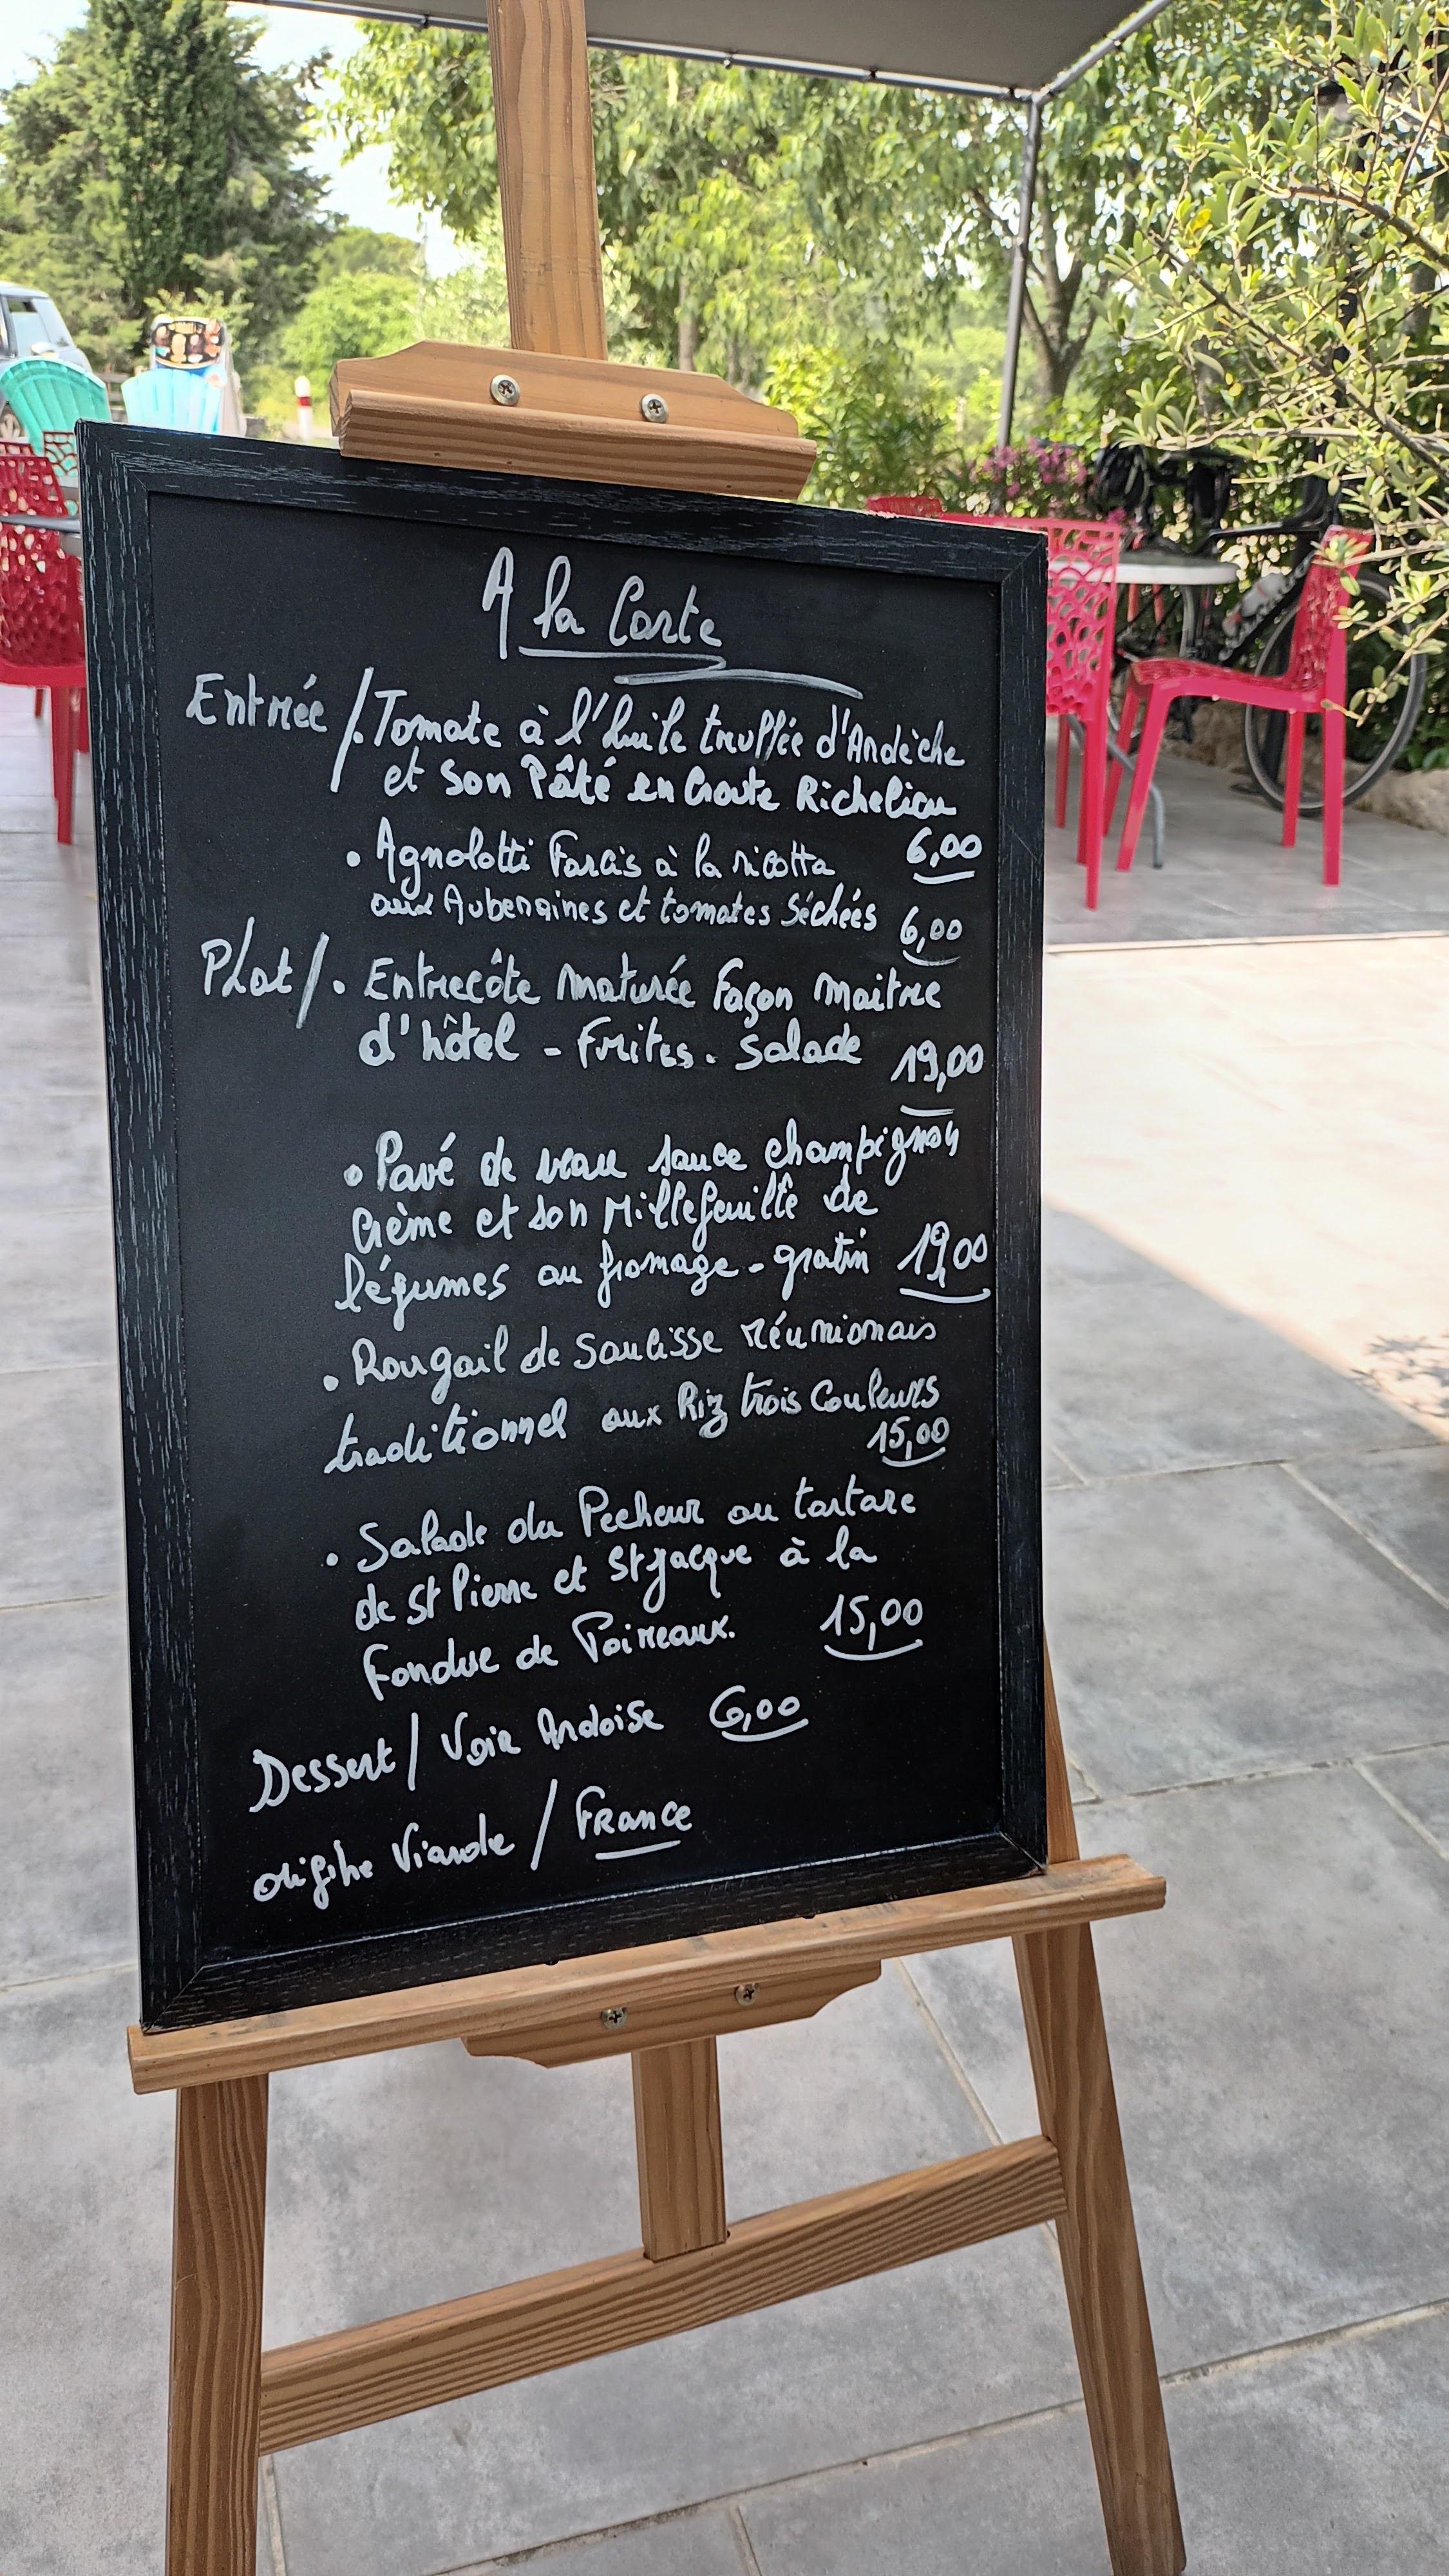 A la Carte
Entrée /. Tomate à l'huile truffée d'Ardèche
et Son Pâté en Croute Richelieu
6,00
• Agnolotti Farcis à la ricotta
aux Aubergines et tomates séchées 6,00
Plat / . Entrecôte maturée Façon maitre
d'hôtel - Frites. Salade 19,00
• Pavé de veau sauce champignon
Crème et son Millefeuille de
légumes au fromage - gratin 19,00
• Rougail de saucisse réunionnais
traditionnel aux Riz trois Couleurs
15,00
• Salade du Pecheur au tartare
de St Pierre et St jacque à la
Fondue de Poireaux. 15,00
Dessert / Voir Ardoise 6,00
origine Viande / France